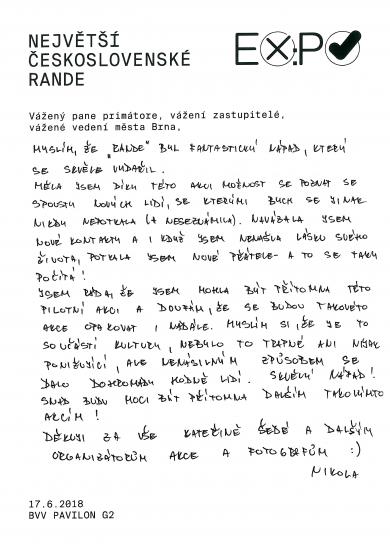 NEJVĚTŠÍ
ČESKOSLOVENSKÉ
RANDE
EX:PO
Vážený pane primátore, vážení zastupitelé,
vážené vedení města Brna,
MYSLÍM, ŽE „RANDE" BYL FANTASTICKÝ NÁPAD, KTERÝ
SE SKVĚLE VYDAŘIL.
MĚLA JSEM DÍKY TÉTO AKCI MOŽNOST SE POZNAT SE
SPOUSTY NOVÝCH LIDÍ, SE KTERÝMI BYCH SE JINAK
NIKDY NEPOTKALA (A NESEZNÁMILA). NAVÁZALA JSEM
NOVÉ KONTAKTY A I KDYŽ JSEM NENAŠLA LÁSKU SVÉHO
ŽIVOTA, POTKALA JSEM NOVÉ PŘÁTELE - A TO SE TAKY
POČÍTÁ!
JSEM RÁDA, ŽE JSEM MOHLA BÝT PŘÍTOMNA TÉTO
PILOTNÍ AKCI A DOUFÁM, ŽE SE BUDOU TAKOVÉTO
AKCE OPAKOVAT I NADÁLE. MYSLÍM SI, ŽE JE TO
SOUČÁSTÍ KULTURY, NEBYLO TO TRAPNÉ ANI NIJAK
PONIŽUJÍCÍ, ALE NENÁSILNÝM ZPŮSOBEM SE
DALO DOHROMADY HODNĚ LIDÍ. SKVĚLÝ NÁPAD!
SNAD BUDU MOCI BÝT PŘÍTOMNA DALŠÍM TAKOVÝMTO
AKCÍM!
DĚKUJI ZA VŠE KATEŘINĚ ŠEDÉ A DALŠÍM
ORGANIZÁTORŮM AKCE A FOTOGRAFŮM :)
NIKOLA
17.6.2018
BVV PAVILON G2